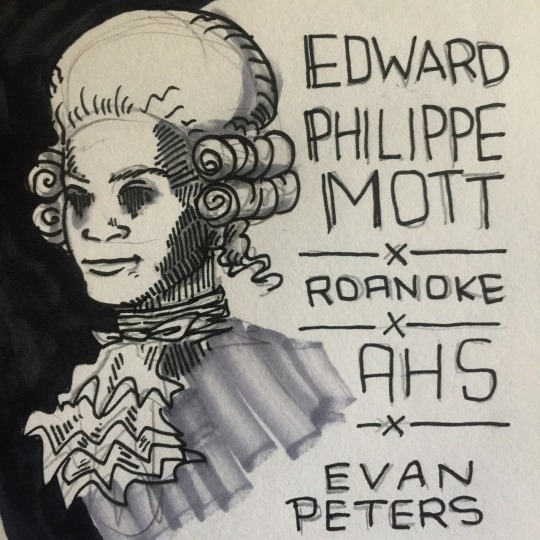 EDWARD
PHILIPPE
MOTT
x
ROANOKE
x
AHS
x
EVAN
PETERS